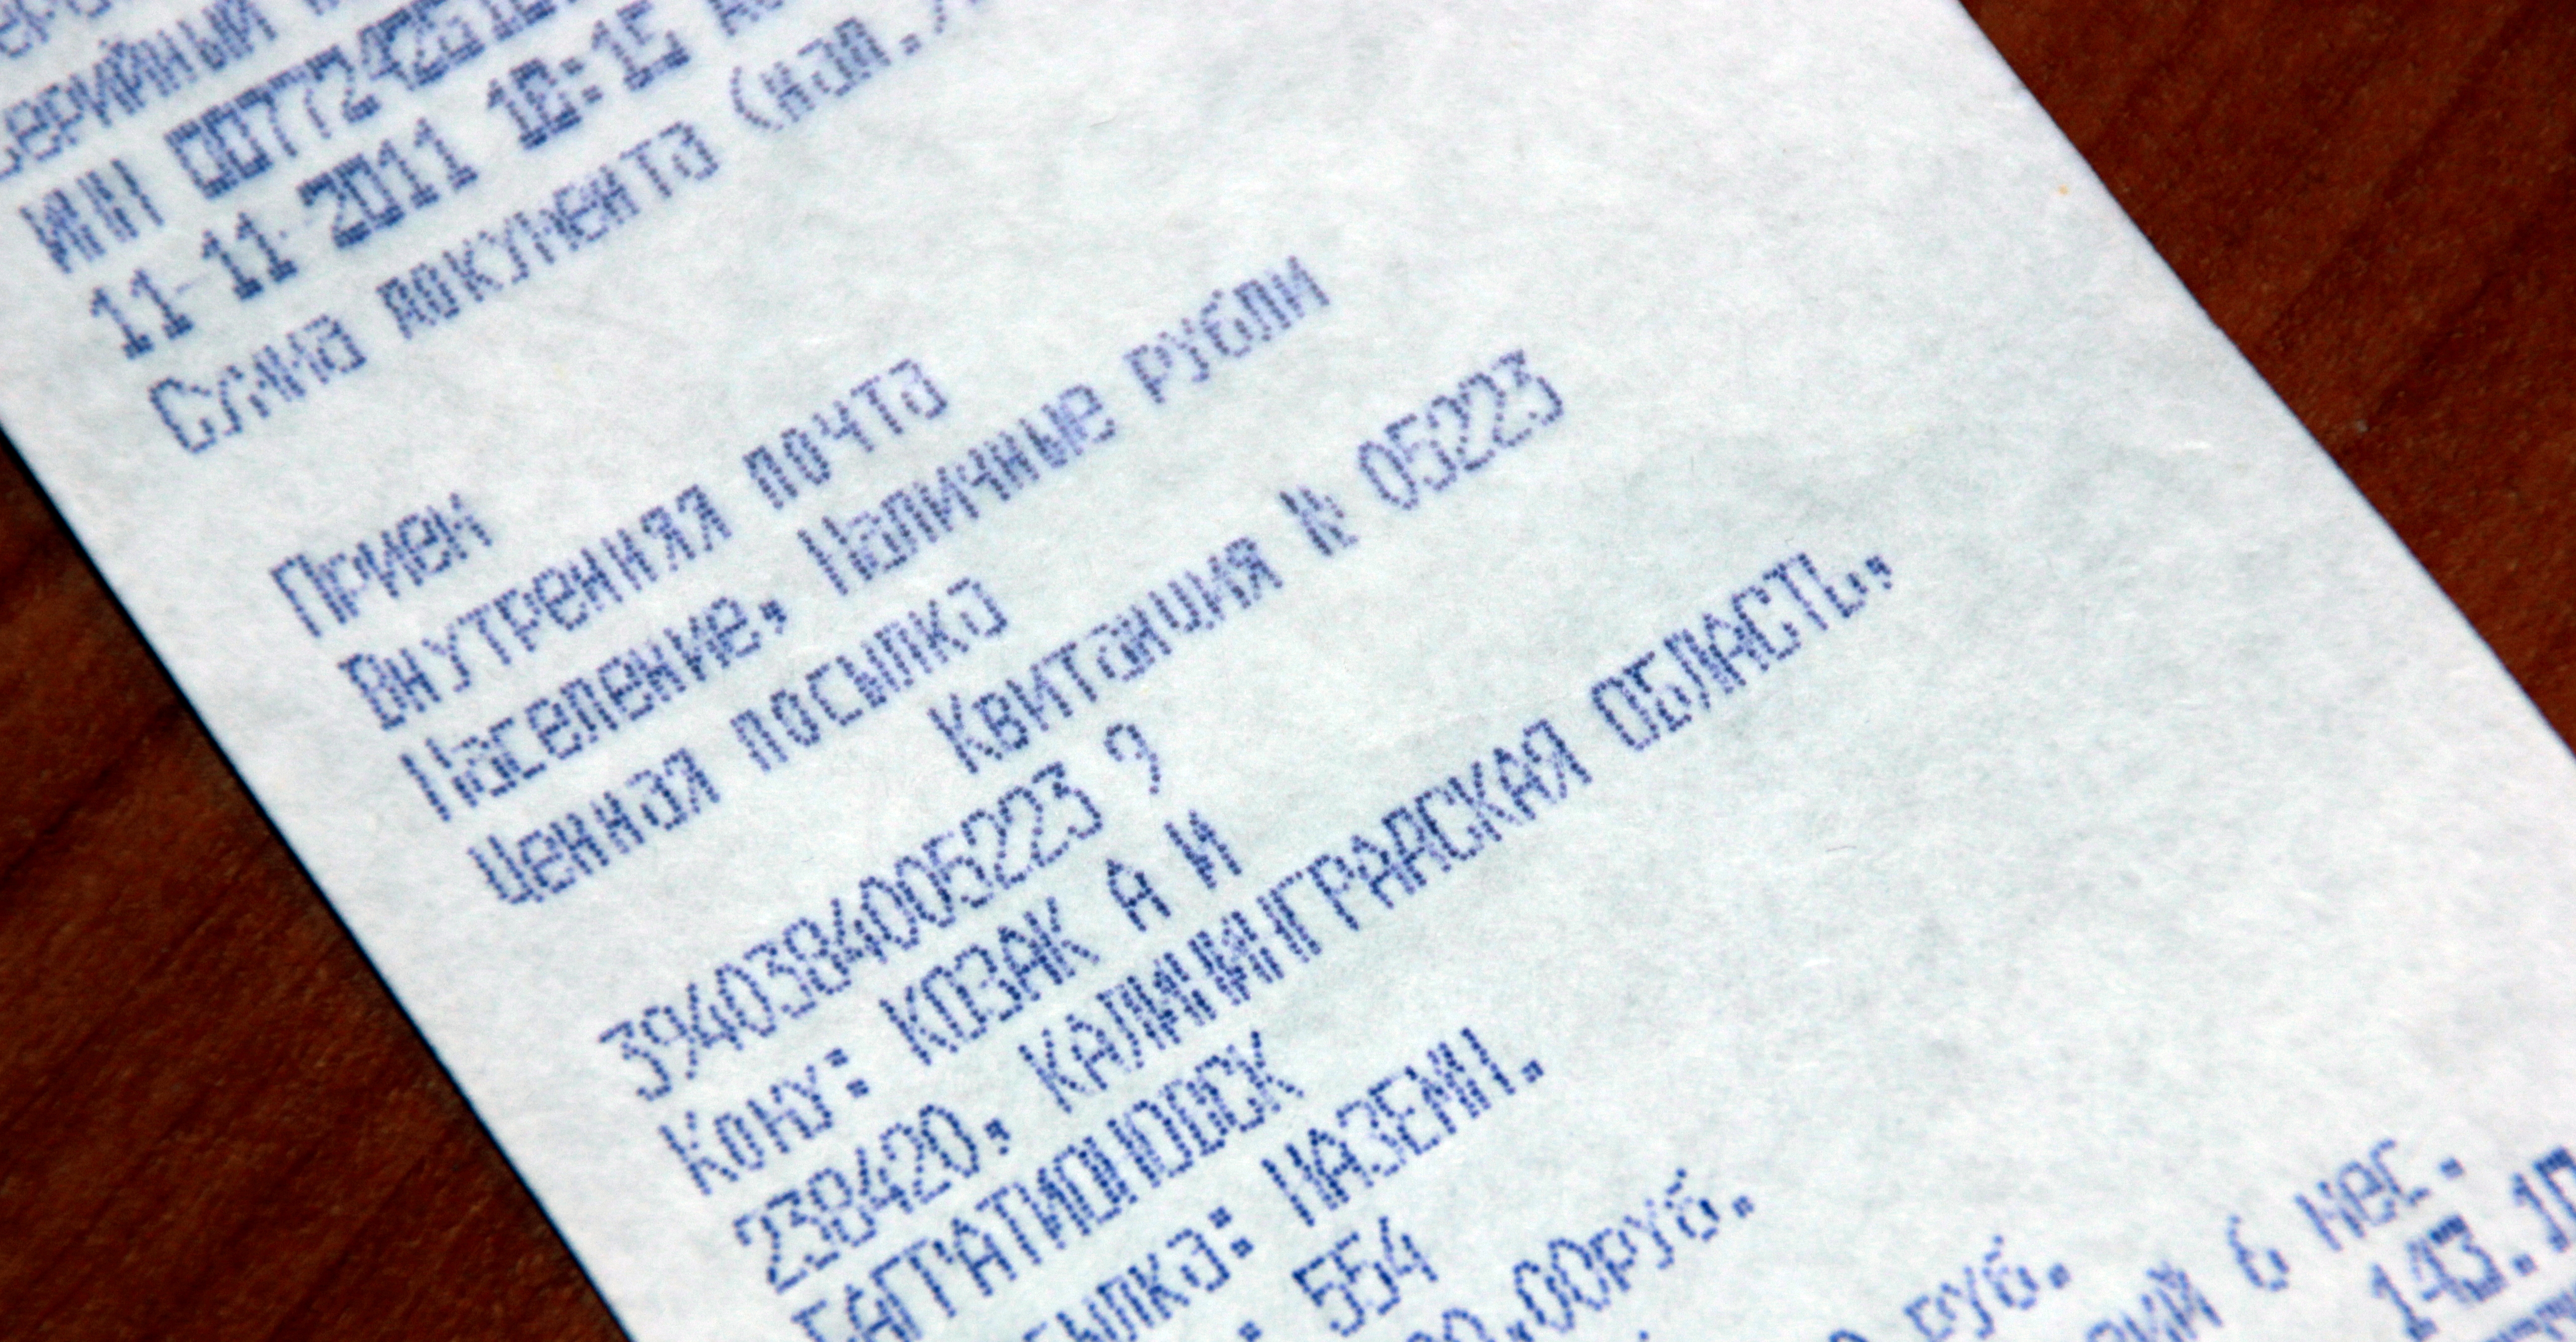 ИНН 007724261
11-11-2011 18:15
Сумма документа (нал.)
Прием
Внутренняя почта
Население, Наличные рубли
Ценная посылка
Квитанция № 05223
3940384005223 9
Кому: КОЗАК А И
238420, КАЛИНИНГРАДСКАЯ ОБЛАСТЬ,
БАГРАТИОНОВСК
НАЗЕМН.
554
00руб.
руб.
6 мес.
143.10